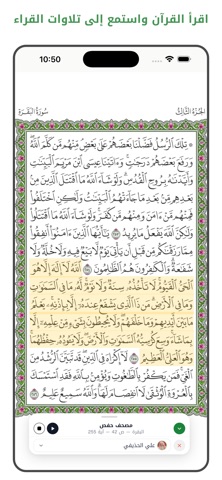 اقرأ القرآن واستمع إلى تلاوات القراء
10:50
الجزء الثالث
سورة البقرة
تلك الرسل فضلنا بعضهم على بعض منهم من كلم الله
ورفع بعضهم درجات وءاتينا عيسى ابن مريم البينات
وأيدناه بروح القدس ولو شاء الله ما اقتتل الذين من
بعدهم من بعد ما جاءتهم البينات ولكن اختلفوا
فمنهم من ءامن ومنهم من كفر ولو شاء الله ما اقتتلوا
ولكن الله يفعل ما يريد يا أيها الذين ءامنوا أنفقوا
مما رزقناكم من قبل أن يأتي يوم لا بيع فيه ولا خلة ولا
شفاعة والكافرون هم الظالمون الله لا إله إلا هو
الحي القيوم لا تأخذه سنة ولا نوم له ما في السماوات
وما في الأرض من ذا الذي يشفع عنده إلا بإذنه يعلم
ما بين أيديهم وما خلفهم ولا يحيطون بشيء من علمه إلا
بما شاء وسع كرسيه السماوات والأرض ولا يئوده حفظهما
وهو العلي العظيم لا إكراه في الدين قد تبين الرشد من
الغي فمن يكفر بالطاغوت ويؤمن بالله فقد استمسك
بالعروة الوثقى لا انفصام لها والله سميع عليم
مصحف حفص
البقرة — ص 42 — آية 255
علي الحذيفي